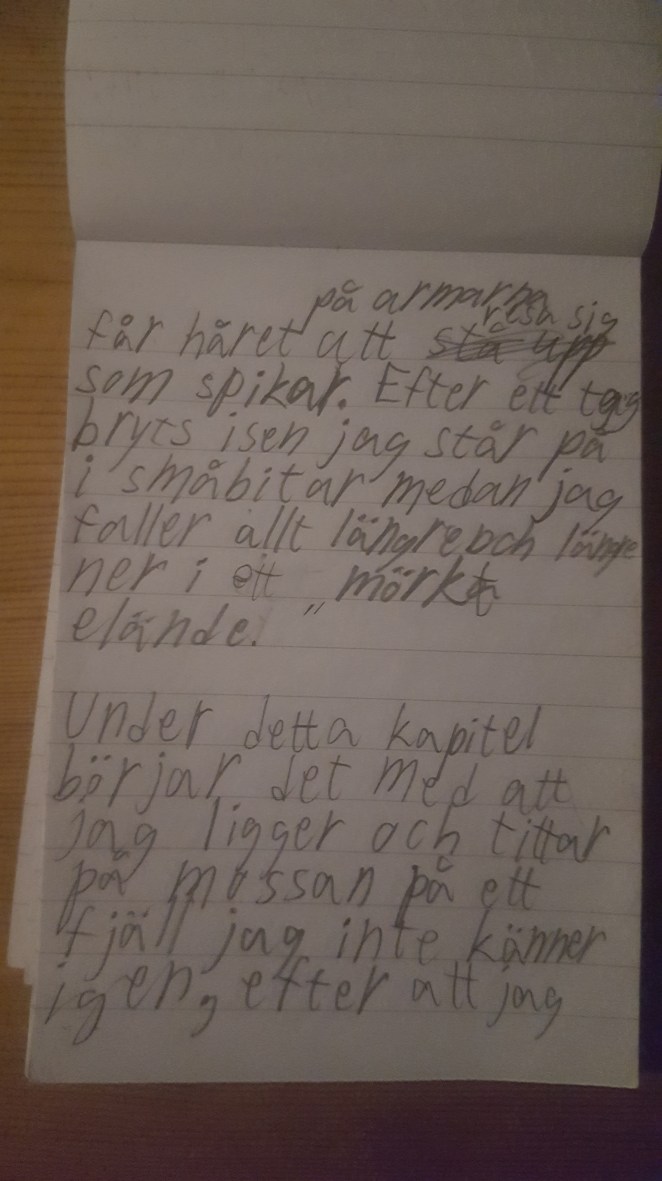 på armarna
resa sig
får håret att stå upp
som spikar. Efter ett tag
bryts isen jag står på
i småbitar medan jag
faller allt längre och längre
ner i ett mörkt
elände. "
Under detta kapitel
börjar det med att
jag ligger och tittar
på mossan på ett
fjäll jag inte känner
igen, efter att jag